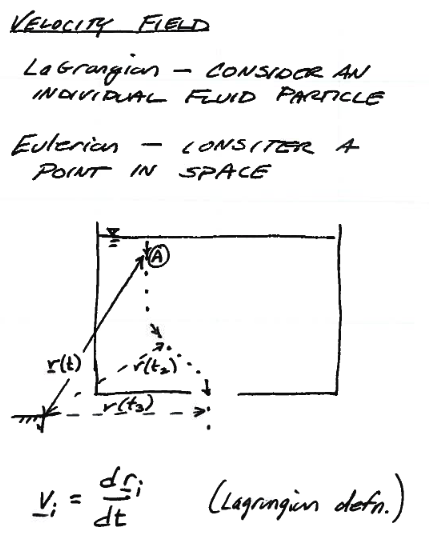 VELOCITY FIELD
LaGrangian — CONSIDER AN
INDIVIDUAL FLUID PARTICLE
Eulerian — CONSITER A
POINT IN SPACE
A
r(t)
r(t₂)
r(t₃)
v_i = dr_i/dt (Lagrangian defn.)